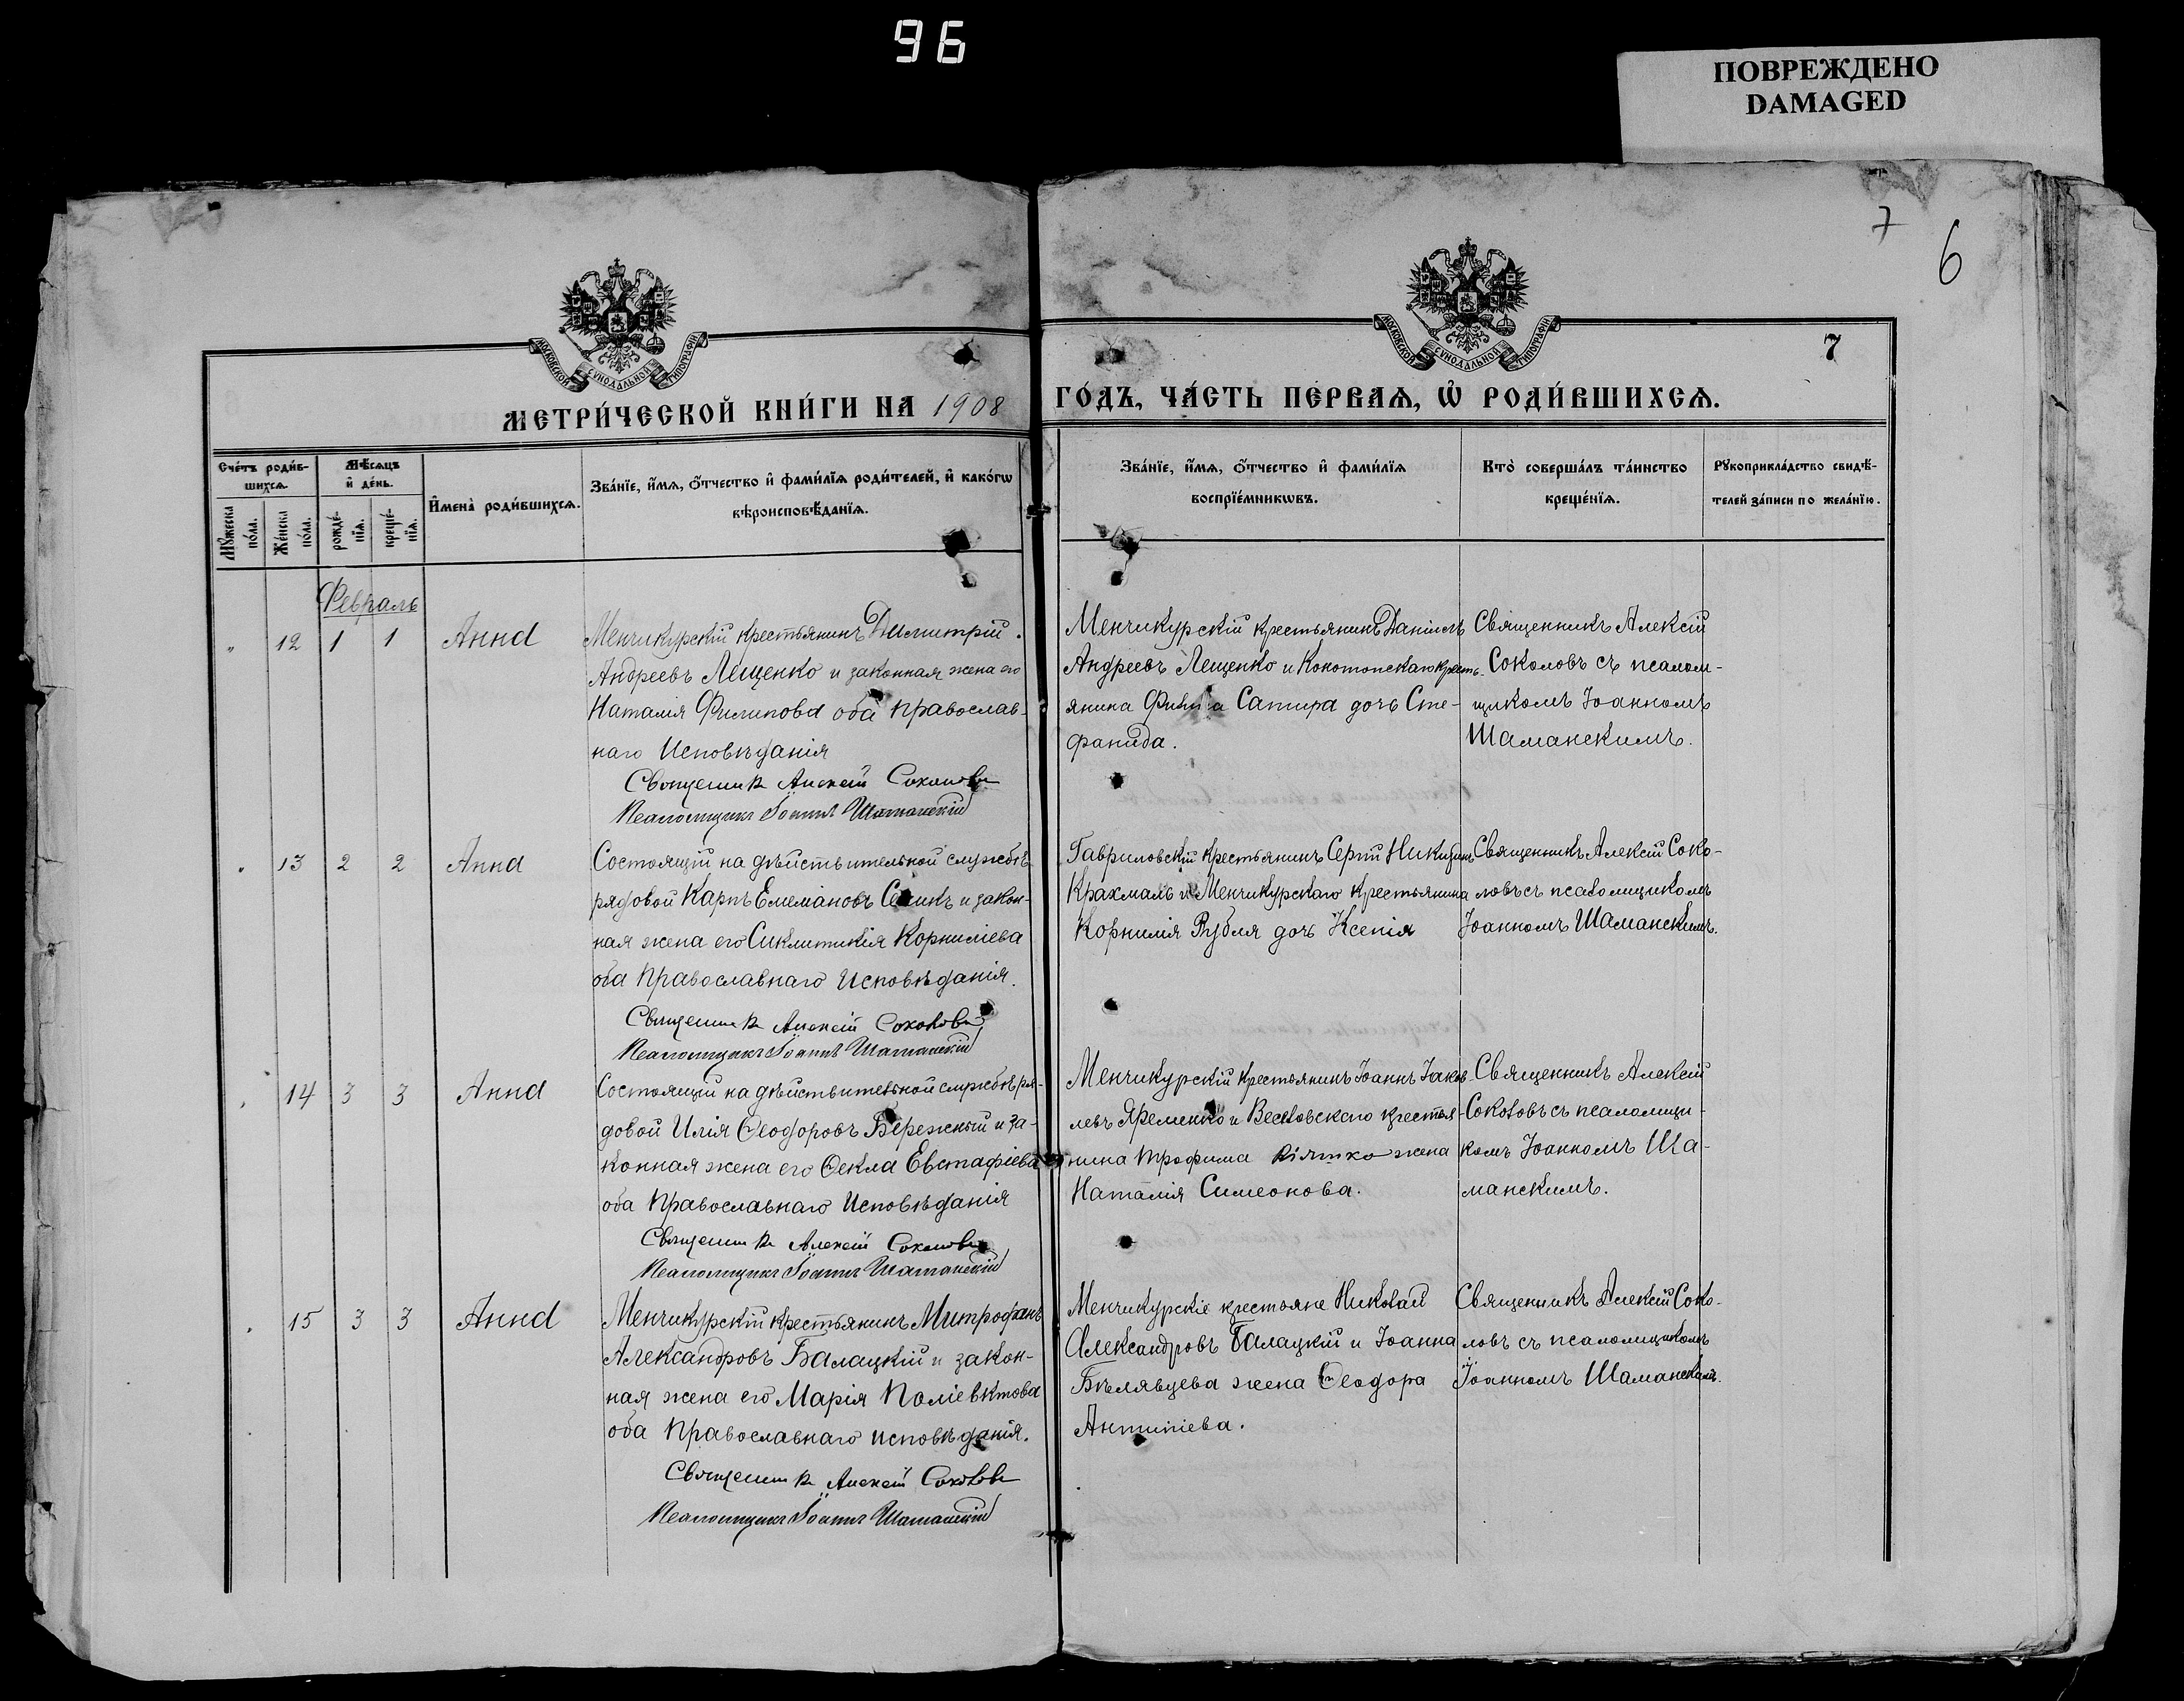 96
ПОВРЕЖДЕНО
DAMAGED
7
6
МОСКОВСКОЙ СѴНОДАЛЬНОЙ ТИПОГРАФІИ
МОСКОВСКОЙ СѴНОДАЛЬНОЙ ТИПОГРАФІИ
7
МЕТРИ́ЧЕСКОЙ КНИ́ГИ НА 1908
ГО́ДЪ, ЧА́СТЬ ПЕ́РВАѦ, Ѡ҆ РОДИ́ВШИХСѦ.
Сче́тъ роди́в-
шихсѧ.
Мѣ́сѧцъ
и҆ де́нь.
И҆мена̀ роди́вшихсѧ.
Зва́нїе, и҆́мѧ, ѻ҆́тчество и҆ фами́лїѧ роди́телей, и҆ како́гѡ
вѣроисповѣ́данїѧ.
Мꙋ́жеска
по́ла.
Же́нска
по́ла.
рожде́-
нїѧ.
креще́-
нїѧ.
Зва́нїе, и҆́мѧ, ѻ҆́тчество и҆ фами́лїѧ
воспрїе́мникѡвъ.
Кто̀ соверша́лъ та́инство
креще́нїѧ.
Рꙋкоприкла́дство свидѣ́-
телей за́писи по жела́нїю.
Февраль
" 12 1 1 Анна
Менчикурскій крестьянинъ Димитрій
Андреевъ Лещенко и законная жена его
Наталія Филипова оба православ-
наго Исповѣданія
Священникъ Алексій Соколовъ
Псаломщикъ Іоаннъ Шаманскій
Менчикурскій крестьянинъ Даніилъ
Андреевъ Лещенко и Конотопскаго кресть-
янина Сатира дочь Сте-
фанида.
Священникъ Алексій
Соколовъ съ псалом-
щикомъ Іоанномъ
Шаманскимъ.
" 13 2 2 Анна
Состоящій на дѣйствительной службѣ
рядовой Карпъ Емеліановъ и закон-
ная жена его Сиклитикія Корниліева
оба Православнаго Исповѣданія.
Священникъ Алексій Соколовъ
Псаломщикъ Іоаннъ Шаманскій
Гавриловскій крестьянинъ Сергій Никитинъ
Крахмаль и Менчикурскаго крестьянина
Корнилія Рубля дочь Ксенія
Священникъ Алексій Соко-
ловъ съ псаломщикомъ
Іоанномъ Шаманскимъ.
" 14 3 3 Анна
Состоящій на дѣйствительной службѣ ря-
довой Илія Ѳеодоровъ Бережный и за-
конная жена его Ѳекла Евстафіева
оба Православнаго Исповѣданія
Священникъ Алексій Соколовъ
Псаломщикъ Іоаннъ Шаманскій
Менчикурскій крестьянинъ Іоаннъ Іаков-
левъ Яременко и Веселовскаго крестья-
нина Трофима жена
Наталія Симеонова.
Священникъ Алексій
Соколовъ съ псаломщи-
комъ Іоанномъ Ша-
манскимъ.
" 15 3 3 Анна
Менчикурскій крестьянинъ Митрофанъ
Александровъ Балацкій и закон-
ная жена его Марія Поліевктова
оба Православнаго исповѣданія.
Священникъ Алексій Соколовъ
Псаломщикъ Іоаннъ Шаманскій
Менчикурскіе крестьяне Николай
Александровъ Балацкій и Іоанна
Бѣлявцева жена Ѳеодора
Антипіева.
Священникъ Алексій Соко-
ловъ съ псаломщикомъ
Іоанномъ Шаманскимъ.